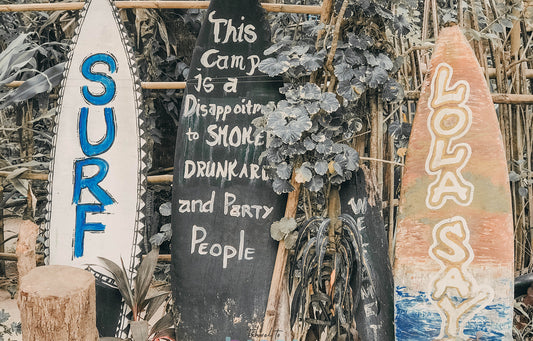 SURF
This
Camp
is a
Disappointm
to SMOKE
DRUNKARD
and PARTY
People
W
LOLA
SAY